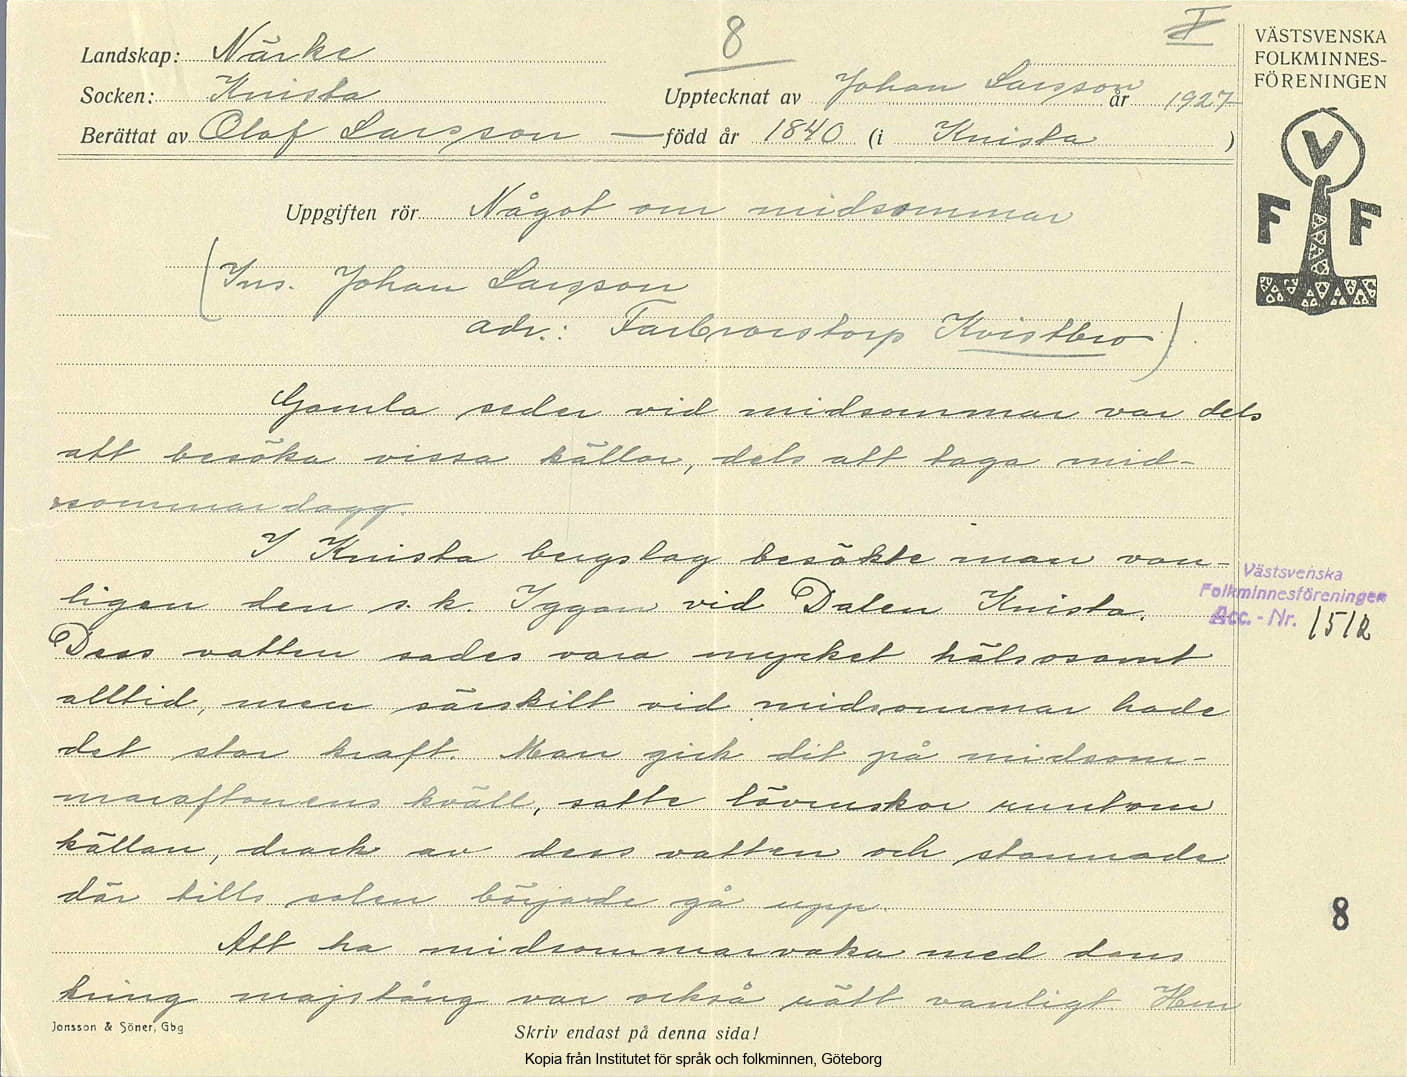 8
I
Landskap: Närke
Socken: Knista
Upptecknat av Johan Larsson år 1927
Berättat av Olof Larsson — född år 1840 (i Knista )
VÄSTSVENSKA
FOLKMINNES-
FÖRENINGEN
V
F F
Uppgiften rör Något om midsommar
(Ins. Johan Larsson
adr.: Farbrorstorp Kvistbro)
Gamla seder vid midsommar var dels
att besöka vissa källor, dels att taga mid-
sommardagg.
I Knista bergslag besökte man van-
ligen den s.k. Iggan vid Dalen Knista.
Dess vatten sades vara mycket hälsosamt
alltid, men särskilt vid midsommar hade
det stor kraft. Man gick dit på midsom-
maraftonens kväll, satte lövruskor runtom
källan, drack av dess vatten och stannade
där tills solen började gå upp.
Att ha midsommarvaka med dans
kring majstång var också rätt vanligt. Hur
Västsvenska
Folkminnesföreningen
Acc. - Nr. 1512
8
Jonsson & Söner, Gbg
Skriv endast på denna sida!
Kopia från Institutet för språk och folkminnen, Göteborg